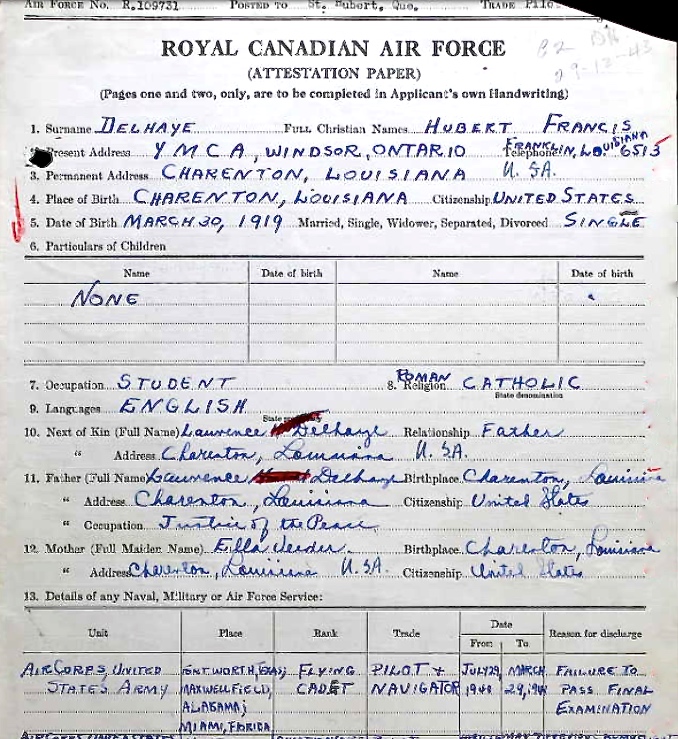 AIR FORCE NO. R.109731 POSTED TO St. Hubert, Que. TRADE
ROYAL CANADIAN AIR FORCE
(ATTESTATION PAPER)
(Pages one and two, only, are to be completed in Applicant's own Handwriting)
1. Surname DELHAYE Full Christian Names HUBERT FRANCIS
2. Present Address YMCA, WINDSOR, ONTARIO Telephone FRANKLIN, LOUISIANA 6513
3. Permanent Address CHARENTON, LOUISIANA U.SA.
4. Place of Birth CHARENTON, LOUISIANA Citizenship UNITED STATES
5. Date of Birth MARCH 30, 1919 Married, Single, Widower, Separated, Divorced SINGLE
6. Particulars of Children
Name Date of birth Name Date of birth
NONE
7. Occupation STUDENT 8. Religion ROMAN CATHOLIC
State denomination
9. Languages ENGLISH
10. Next of Kin (Full Name) Lawrence Delhaye Relationship Father
" Address Charenton, Louisiana U.SA.
11. Father (Full Name) Lawrence Delhaye Birthplace Charenton, Louisiana
" Address Charenton, Louisiana Citizenship United States
" Occupation Justice of the Peace
12. Mother (Full Maiden Name) Birthplace Charenton, Louisiana
" Address Charenton, Louisiana U.SA. Citizenship United States
13. Details of any Naval, Military or Air Force Service:
Unit Place Rank Trade Date Reason for discharge
From To
AIR CORPS, UNITED STATES ARMY
MAXWELL FIELD, ALABAMA; MIAMI, FLORIDA
FLYING CADET
PILOT & NAVIGATOR
JULY 29, 1940
MARCH 29, 1941
FAILURE TO PASS FINAL EXAMINATION